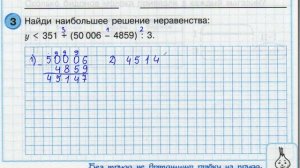 3 Найди наибольшее решение неравенства:
3 1 2
y < 351 + (50 006 − 4859) : 3.
1) 50006 2) 4514
4859
45147
Без труда не вытащишь рыбку из пруда.